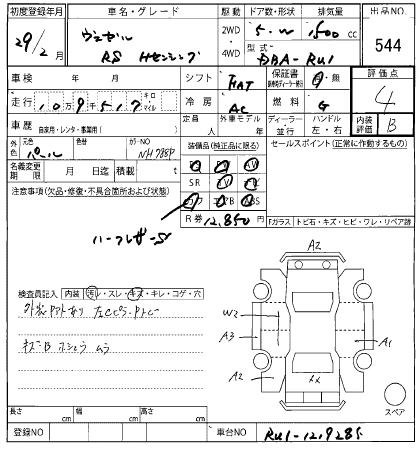 初度登録年月 車名・グレード 駆動 ドア数・形状 排気量 出品NO
29/2月 ヴェゼル RS Hセンシング 2WD 4WD 5・W 1500cc 544
型式 DBA-RU1
車検 年 月 シフト FAT 保証書 有・無 評価点 4
走行 10万9千517 キロ マイル 冷房 AC 燃料 G
車歴 自家用・レンタ・事業用( ) 定員 人 外車モデル 年 ディーラー 並行 ハンドル 左・右 内装評価 B
外色 元色 パール 色替 カラーNO NH788P 装備品(純正品に限る) セールスポイント(正常に作動するもの)
名義変更期限 月 日迄 積載 t
SR
注意事項(欠品・修復・不具合箇所および状態)
ABS
R券 12,850円
ハーフレザーS
『ガラス トビ石・キズ・ヒビ・ワレ・リペア跡
A2
検査員記入 内装 汚レ・スレ・キズ・キレ・コゲ・穴
W2
A3
A1
A2
スペア
長さ cm 幅 cm 高さ cm
登録NO 車台NO RU1-1219285